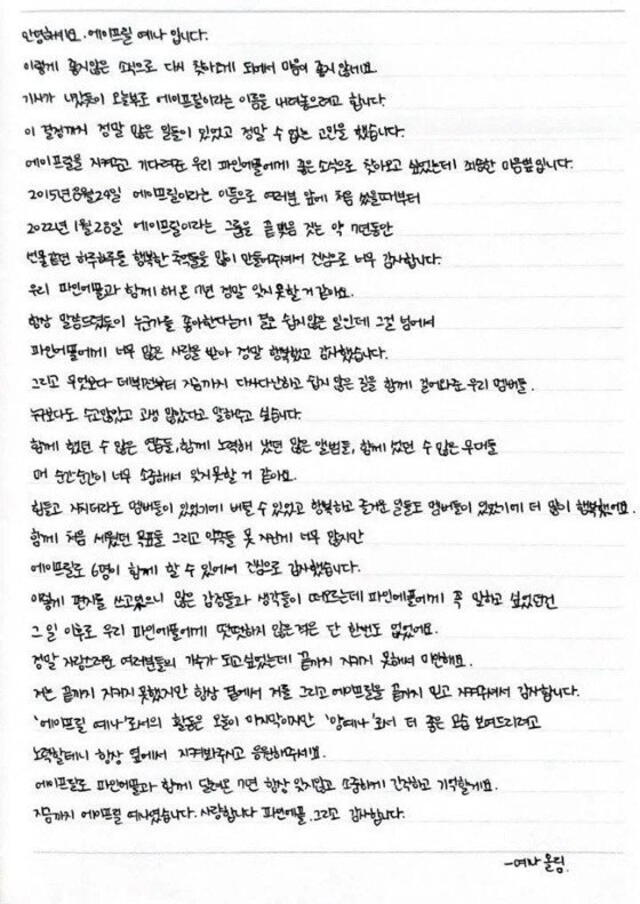 안녕하세요. 에이프릴 예나 입니다.
이렇게 좋지않은 소식으로 다시 찾아오게 되어서 마음이 좋지 않네요.
기사가 나갔듯이 오늘부로 에이프릴이라는 이름을 내려놓으려고 합니다.
이 결정까지 정말 많은 일들이 있었고 정말 수 없는 고민을 했습니다.
에이프릴을 지켜주고 기다려주던 우리 파인에플에게 좋은 소식으로 찾아오고 싶었는데 죄송한 마음뿐입니다.
2015년 8월 24일 에이프릴이라는 이름으로 여러분 앞에 처음 섰을때부터
2022년 1월 28일 에이프릴이라는 그룹을 끝맺음 짓는 약 7년동안
선물같던 하루하루들 행복한 추억들을 많이 만들어주셔서 진심으로 너무 감사합니다.
우리 파인에플과 함께 해 온 7년 정말 잊지 못할 거 같아요.
항상 말씀드렸듯이 누군가를 좋아한다는게 결코 쉽지않은 일인데 그걸 넘어서
파인에플에게 너무 많은 사랑을 받아 정말 행복했고 감사했습니다.
그리고 무엇보다 데뷔전부터 지금까지 다사다난하고 쉽지 않은 길을 함께 걸어와준 우리 멤버들.
누구보다도 수고많았고 고생 많았다고 말해주고 싶습니다.
함께 했던 수 많은 연습들, 함께 노력해 냈던 많은 앨범들, 함께 섰던 수 많은 무대들
매 순간순간이 너무 소중해서 잊지못할 거 같아요.
힘들고 지치더라도 멤버들이 있었기에 버틸 수 있었고 행복하고 즐거운 일들도 멤버들이 있었기에 더 많이 행복했어요.
함께 처음 세웠던 목표들 그리고 약속들 못 지킨게 너무 많지만
에이프릴로 6명이 함께 할 수 있어서 진심으로 감사했습니다.
이렇게 편지를 쓰고있으니 많은 감정들과 생각들이 떠오르는데 파인에플에게 꼭 말하고 싶었던건
그 일 이후로 우리 파인에플에게 떳떳하지 않은적은 단 한번도 없었어요.
정말 자랑스러운 여러분들의 가수가 되고싶었는데 끝까지 지키지 못해서 미안해요.
저는 끝까지 지키지 못했지만 항상 곁에서 저를 그리고 에이프릴을 끝까지 믿고 지켜주셔서 감사합니다.
'에이프릴 예나'로서의 활동은 오늘이 마지막이지만 '양예나'로서 더 좋은 모습 보여드리려고
노력할테니 항상 옆에서 지켜봐주시고 응원해주세요.
에이프릴로 파인에플과 함께 달려온 7년 항상 잊지않고 소중하게 간직하고 기억할게요.
지금까지 에이프릴 예나였습니다. 사랑합니다 파인에플. 그리고 감사합니다.
-예나 올림.